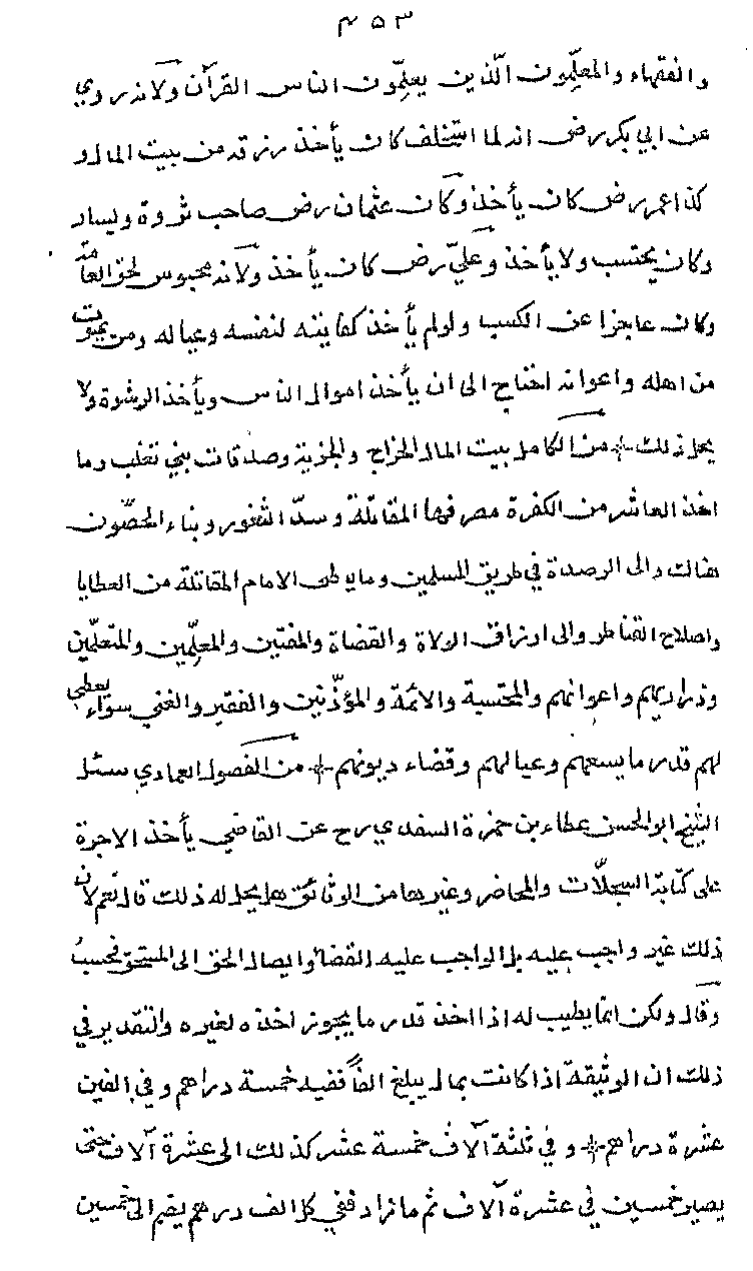 ٤٥٣
والفقهاء والمعلّمون الّذين يعلّمون الناس القرآن ولانه روي
عن ابي بكر رض انه لما استخلف كان يأخذ رزقه من بيت المال و
كذا عمر رض كان يأخذ وكان عثمان رض صاحب ثروة ويسار
وكان يحتسب ولا يأخذ وعليّ رض كان يأخذ ولانه محبوس لحق العامّة
وكان عاجزا عن الكسب ولو لم يأخذ كفايته لنفسه وعياله ومن يمونه
من اهله واعوانه احتاج الى ان يأخذ اموال الناس ويأخذ الرشوة ولا
يحل ذلك من الكامل بيت المال الخراج والجزية وصدقات بني تغلب وما
اخذ العاشر من الكفرة مصرفها المقاتلة وسدّ الثغور وبناء الحصون
هنالك والى الرصدة في طريق المسلمين وما يعطى الامام المقاتلة من العطايا
واصلاح القناطر والى ارزاق الولاة والقضاة والمفتين والمعلّمين والمتعلّمين
وذراريهم واعوانهم والمحتسبة والائمة والمؤذّنين والفقير والغني سواء يعطي
لهم قدر ما يسعهم وعيالهم وقضاء ديونهم من الفصول العمادي سئل
الشيخ ابو الحسن عطاء بن حمزة السغدي رح عن القاضي يأخذ الاجرة
على كتابة السجلّات والمحاضر وغيرها من الوثائق هل يحل له ذلك قال نعم لان
ذلك غير واجب عليه بل الواجب عليه القضاء وايصال الحق الى المستحق فحسبُ
وقال ولكن انّما يطيب له اذا اخذ قدر ما يجوز اخذه لغيره والتقدير في
ذلك ان الوثيقة اذا كانت بمال يبلغ الفاً ففيه خمسة دراهم وفي الفين
عشرة دراهم وفي ثلثة آلاف خمسة عشر كذلك الى عشرة آلاف حتى
يصير خمسين في عشرة آلاف ثم ما زاد ففي كل الف درهم يضم الى خمسين